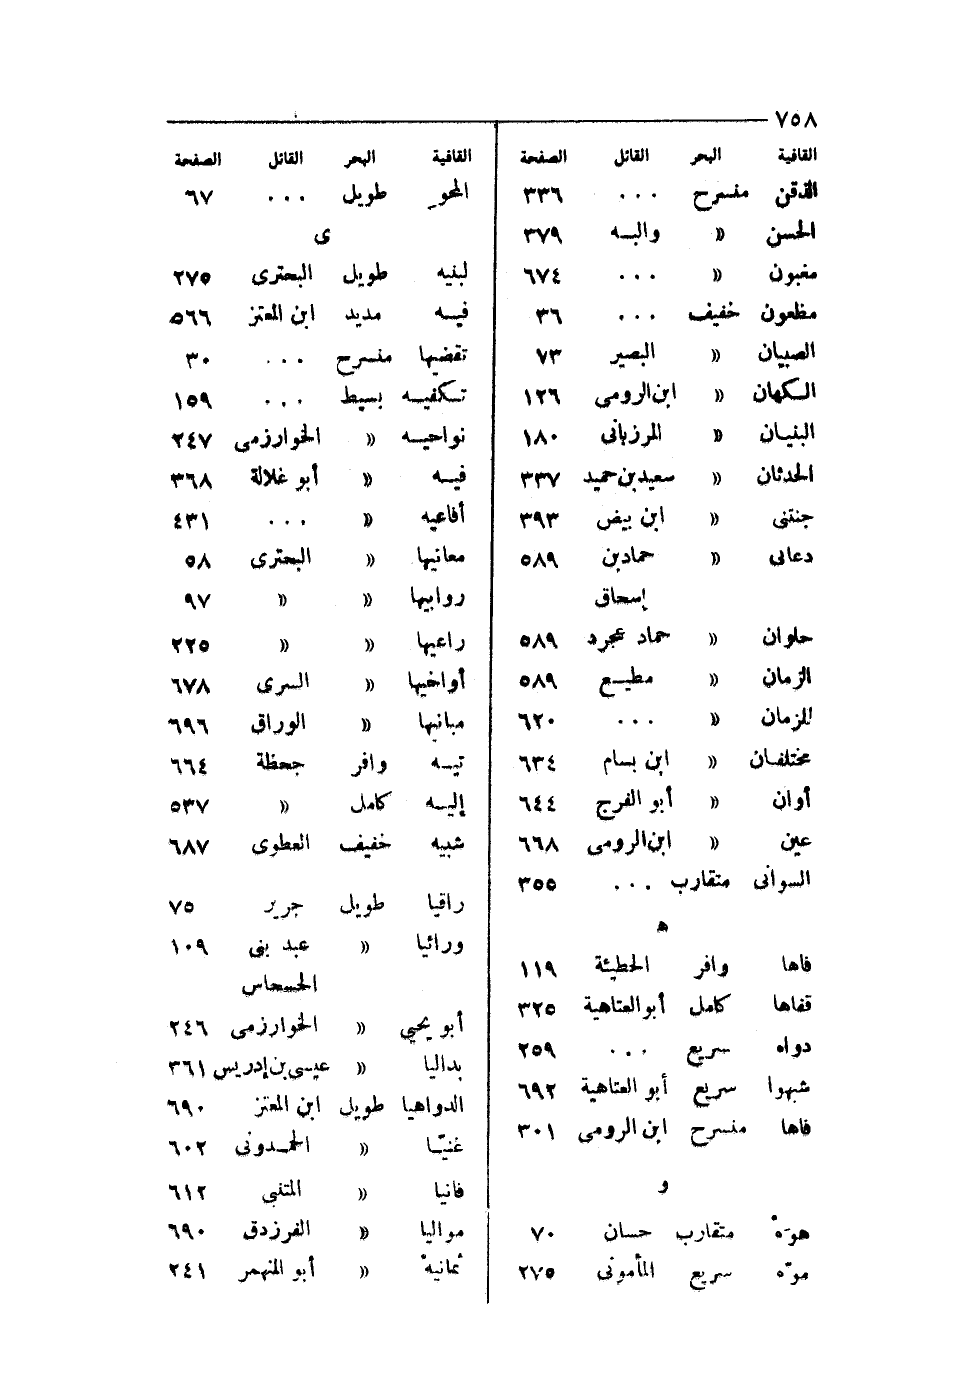 ٧٥٨
القافية البحر القائل الصفحة
الذقن منسرح ... ٣٣٦
الحسن « والبه ٣٧٩
مغبون « ... ٦٧٤
مظعون خفيف ... ٣٦
الصبيان « البصير ٧٣
الكهان « ابن الرومى ١٢٦
البنيان « المرزبانى ١٨٠
الحدثان « سعيد بن حميد ٣٣٧
جنتنى « ابن بيض ٣٩٣
دعانى « حماد بن ٥٨٩
إسحاق
حلوان « حماد عجرد ٥٨٩
الزمان « مطيع ٥٨٩
للزمان « ... ٦٢٠
مختلفان « ابن بسام ٦٣٤
أوان « أبو الفرج ٦٤٤
عين « ابن الرومى ٦٦٨
السوانى متقارب ... ٣٥٥
ه
فاها وافر الحطيئة ١١٩
قفاها كامل أبو العتاهية ٣٢٥
دواه سريع ... ٢٥٩
شبهوا سريع أبو العتاهية ٦٩٢
فاها منسرح ابن الرومى ٣٠١
و
هوَهْ متقارب حسان ٧٠
موّه سريع المأمونى ٢٧٥
القافية البحر القائل الصفحة
المحو طويل ... ٦٧
ى
لبنيه طويل البحترى ٢٧٥
فيه مديد ابن المعتز ٥٦٦
تقضيها منسرح ... ٣٠
تكفيه بسيط ... ١٥٩
نواحيه « الخوارزمى ٢٤٧
فيه « أبو غلالة ٣٦٨
أفاعيه « ... ٤٣١
معانيها « البحترى ٥٨
روابيها « « ٩٧
راعيها « « ٢٢٥
أواخيها « السرى ٦٧٨
مبانيها « الوراق ٦٩٦
تيه وافر جحظة ٦٦٤
إليه كامل « ٥٣٧
شبيه خفيف العطوى ٦٨٧
راقيا طويل جرير ٧٥
ورائيا « عبد بنى ١٠٩
الحسحاس
أبو يحيي « الخوارزمى ٢٤٦
بداليا « عيسى بن إدريس ٣٦١
الدواهيا طويل ابن المعتز ٦٩٠
غنيّا « الحمدونى ٦٠٢
فانيا « المتنبي ٦١٢
مواليا « الفرزدق ٦٩٠
ثمانيهْ « أبو المنهمر ٢٤١